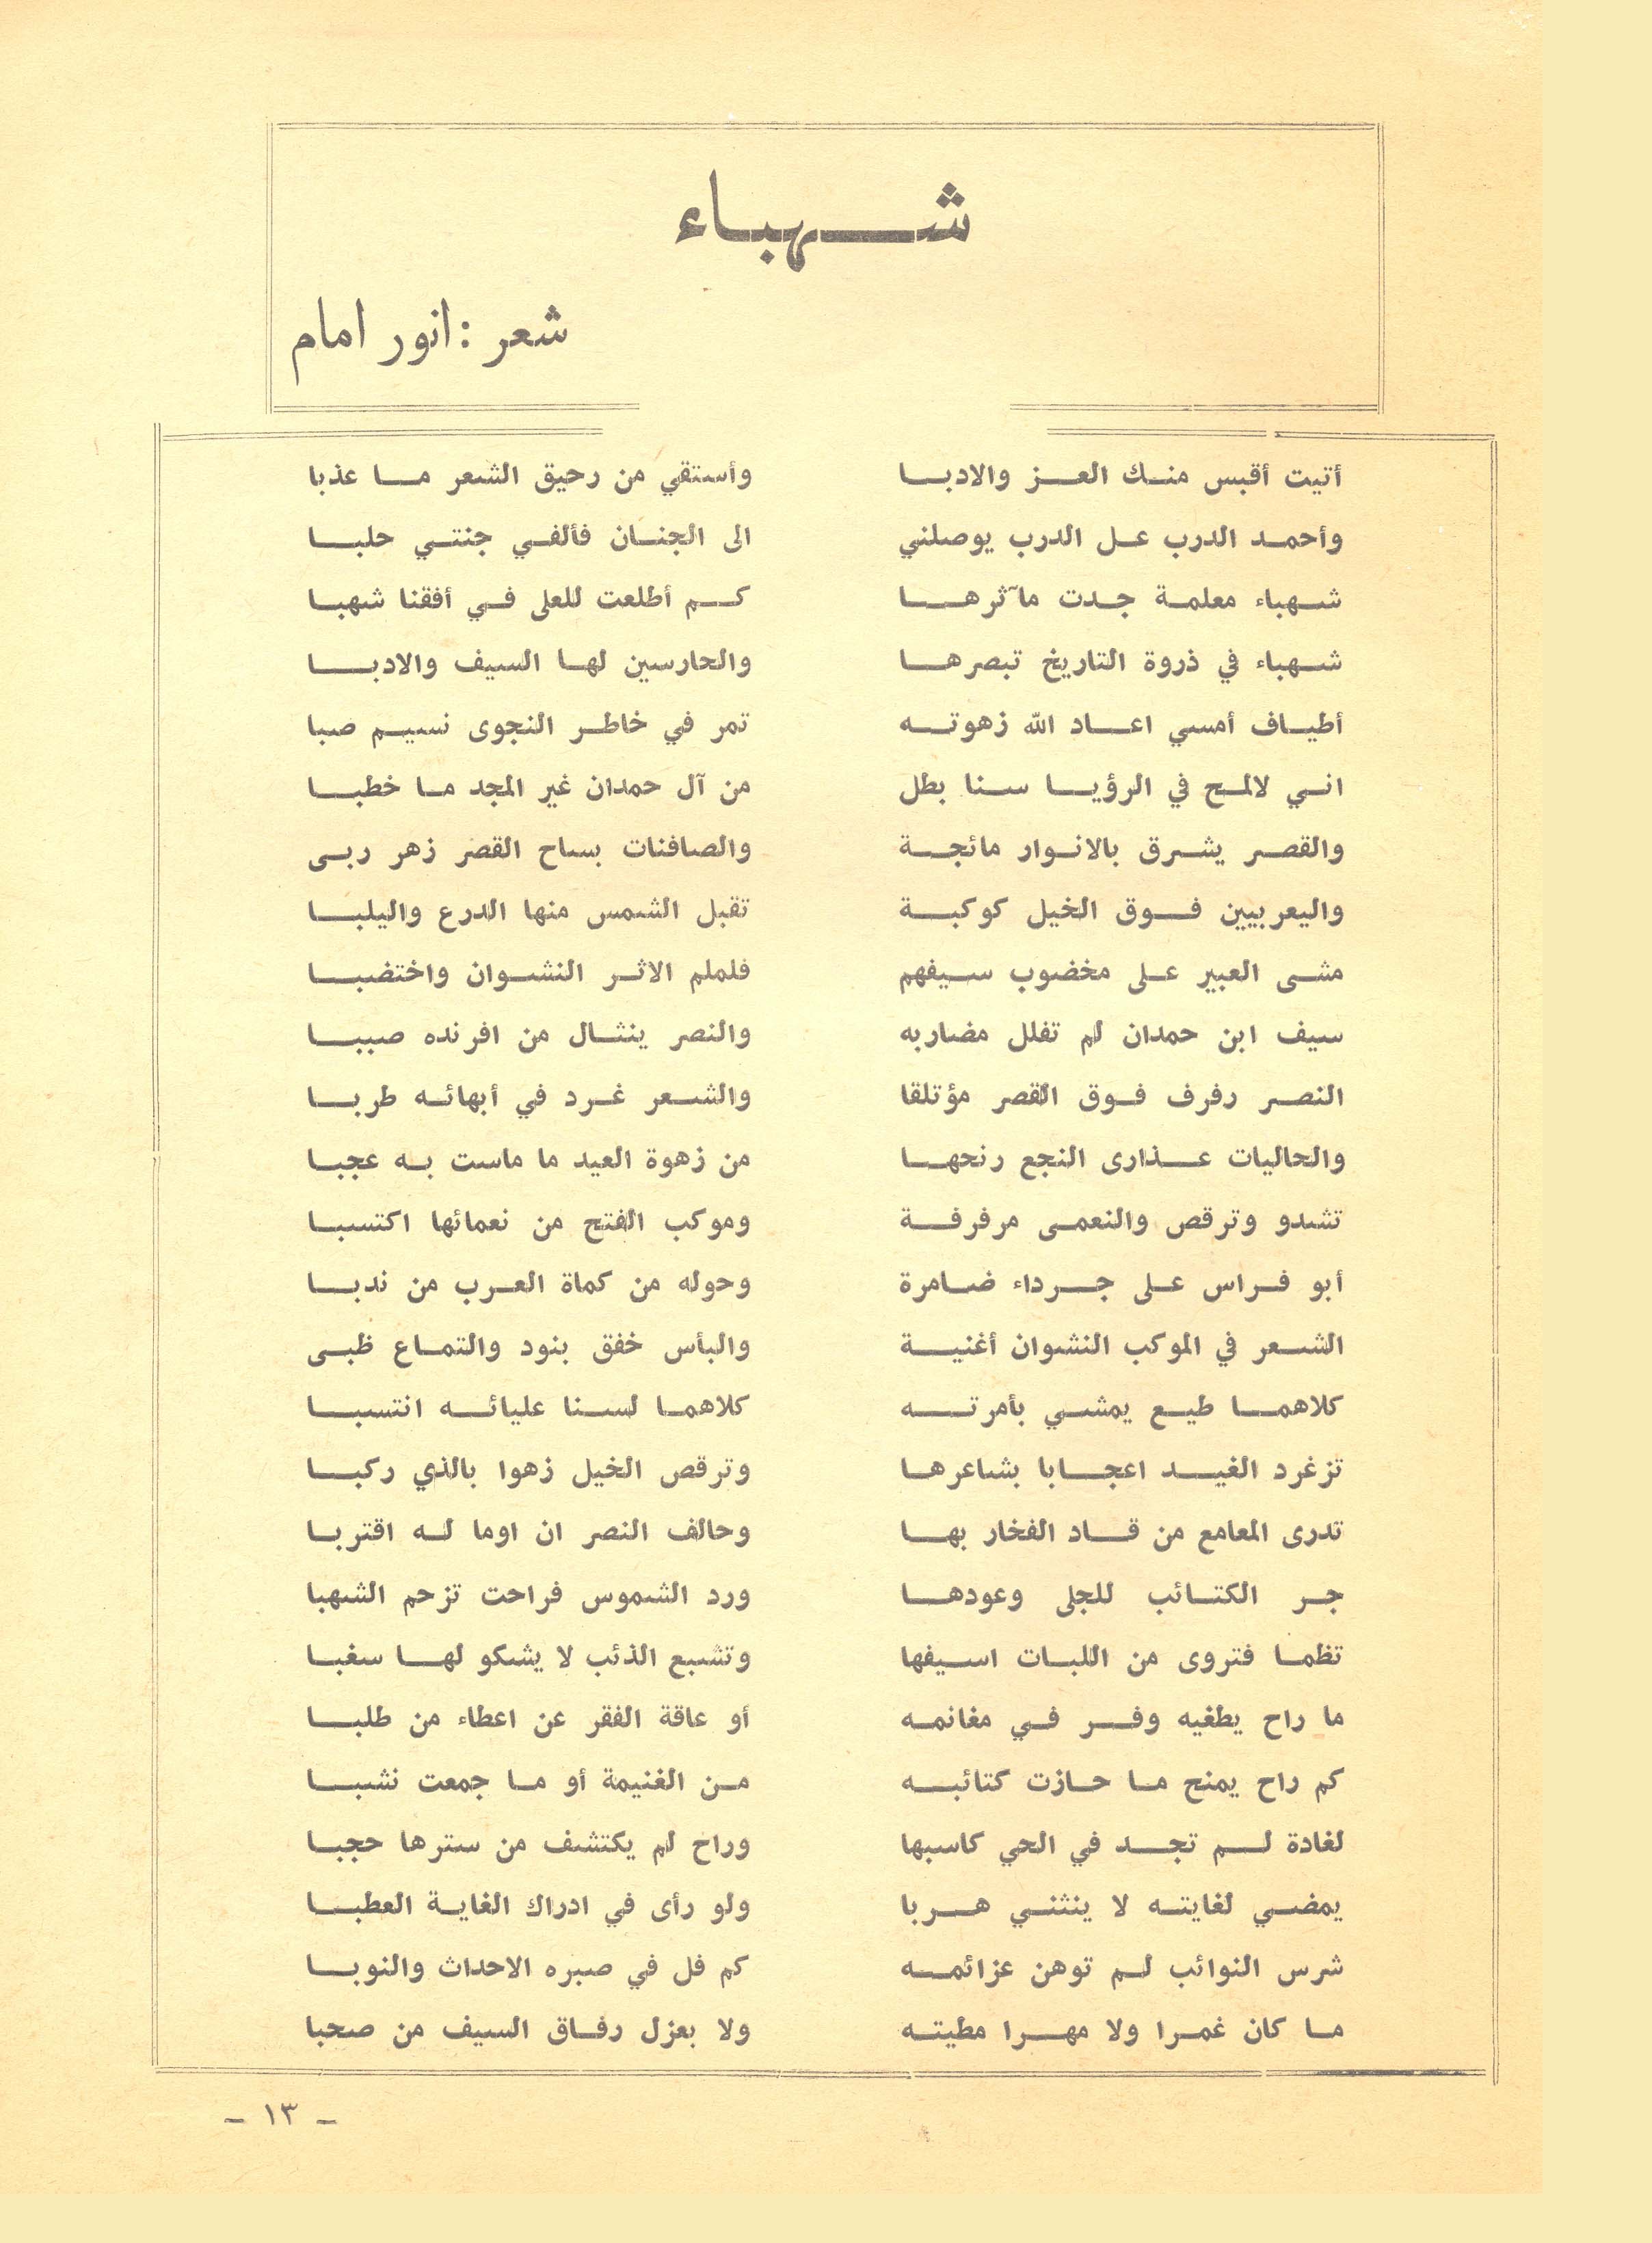 شهباء
شعر : انور امام
أتيت أقبس منك العز والادبا وأستقي من رحيق الشعر ما عذبا
وأحمد الدرب عل الدرب يوصلني الى الجنان فألفي جنتي حلبا
شهباء معلمة جدت مآثرها كم أطلعت للعلى في أفقنا شهبا
شهباء في ذروة التاريخ تبصرها والحارسين لها السيف والادبا
أطياف أمسي اعاد الله زهوته تمر في خاطر النجوى نسيم صبا
اني لالمح في الرؤيا سنا بطل من آل حمدان غير المجد ما خطبا
والقصر يشرق بالانوار مائجة والصافنات بساح القصر زهر ربى
واليعربيين فوق الخيل كوكبة تقبل الشمس منها الدرع واليلبا
مشى العبير على مخضوب سيفهم فلملم الاثر النشوان واختضبا
سيف ابن حمدان لم تفلل مضاربه والنصر ينثال من افرنده صببا
النصر رفرف فوق القصر مؤتلقا والشعر غرد في أبهائه طربا
والحاليات عذارى النجع رنحها من زهوة العيد ما ماست به عجبا
تشدو وترقص والنعمى مرفرفة وموكب الفتح من نعمائها اكتسبا
أبو فراس على جرداء ضامرة وحوله من كماة العرب من ندبا
الشعر في الموكب النشوان أغنية والبأس خفق بنود والتماع ظبى
كلاهما طيع يمشي بأمرته كلاهما لسنا عليائه انتسبا
تزغرد الغيد اعجابا بشاعرها وترقص الخيل زهوا بالذي ركبا
تدرى المعامع من قاد الفخار بها وحالف النصر ان اوما له اقتربا
جر الكتائب للجلى وعودها ورد الشموس فراحت تزحم الشهبا
تظما فتروى من اللبات اسيفها وتشبع الذئب لا يشكو لها سغبا
ما راح يطغيه وفر في مغانمه أو عاقة الفقر عن اعطاء من طلبا
كم راح يمنح ما حازت كتائبه من الغنيمة أو ما جمعت نشبا
لغادة لم تجد في الحي كاسبها وراح لم يكتشف من سترها حجبا
يمضي لغايته لا ينثني هربا ولو رأى في ادراك الغاية العطبا
شرس النوائب لم توهن عزائمه كم فل في صبره الاحداث والنوبا
ما كان غمرا ولا مهرا مطيته ولا بعزل رفاق السيف من صحبا
- ١٣ -